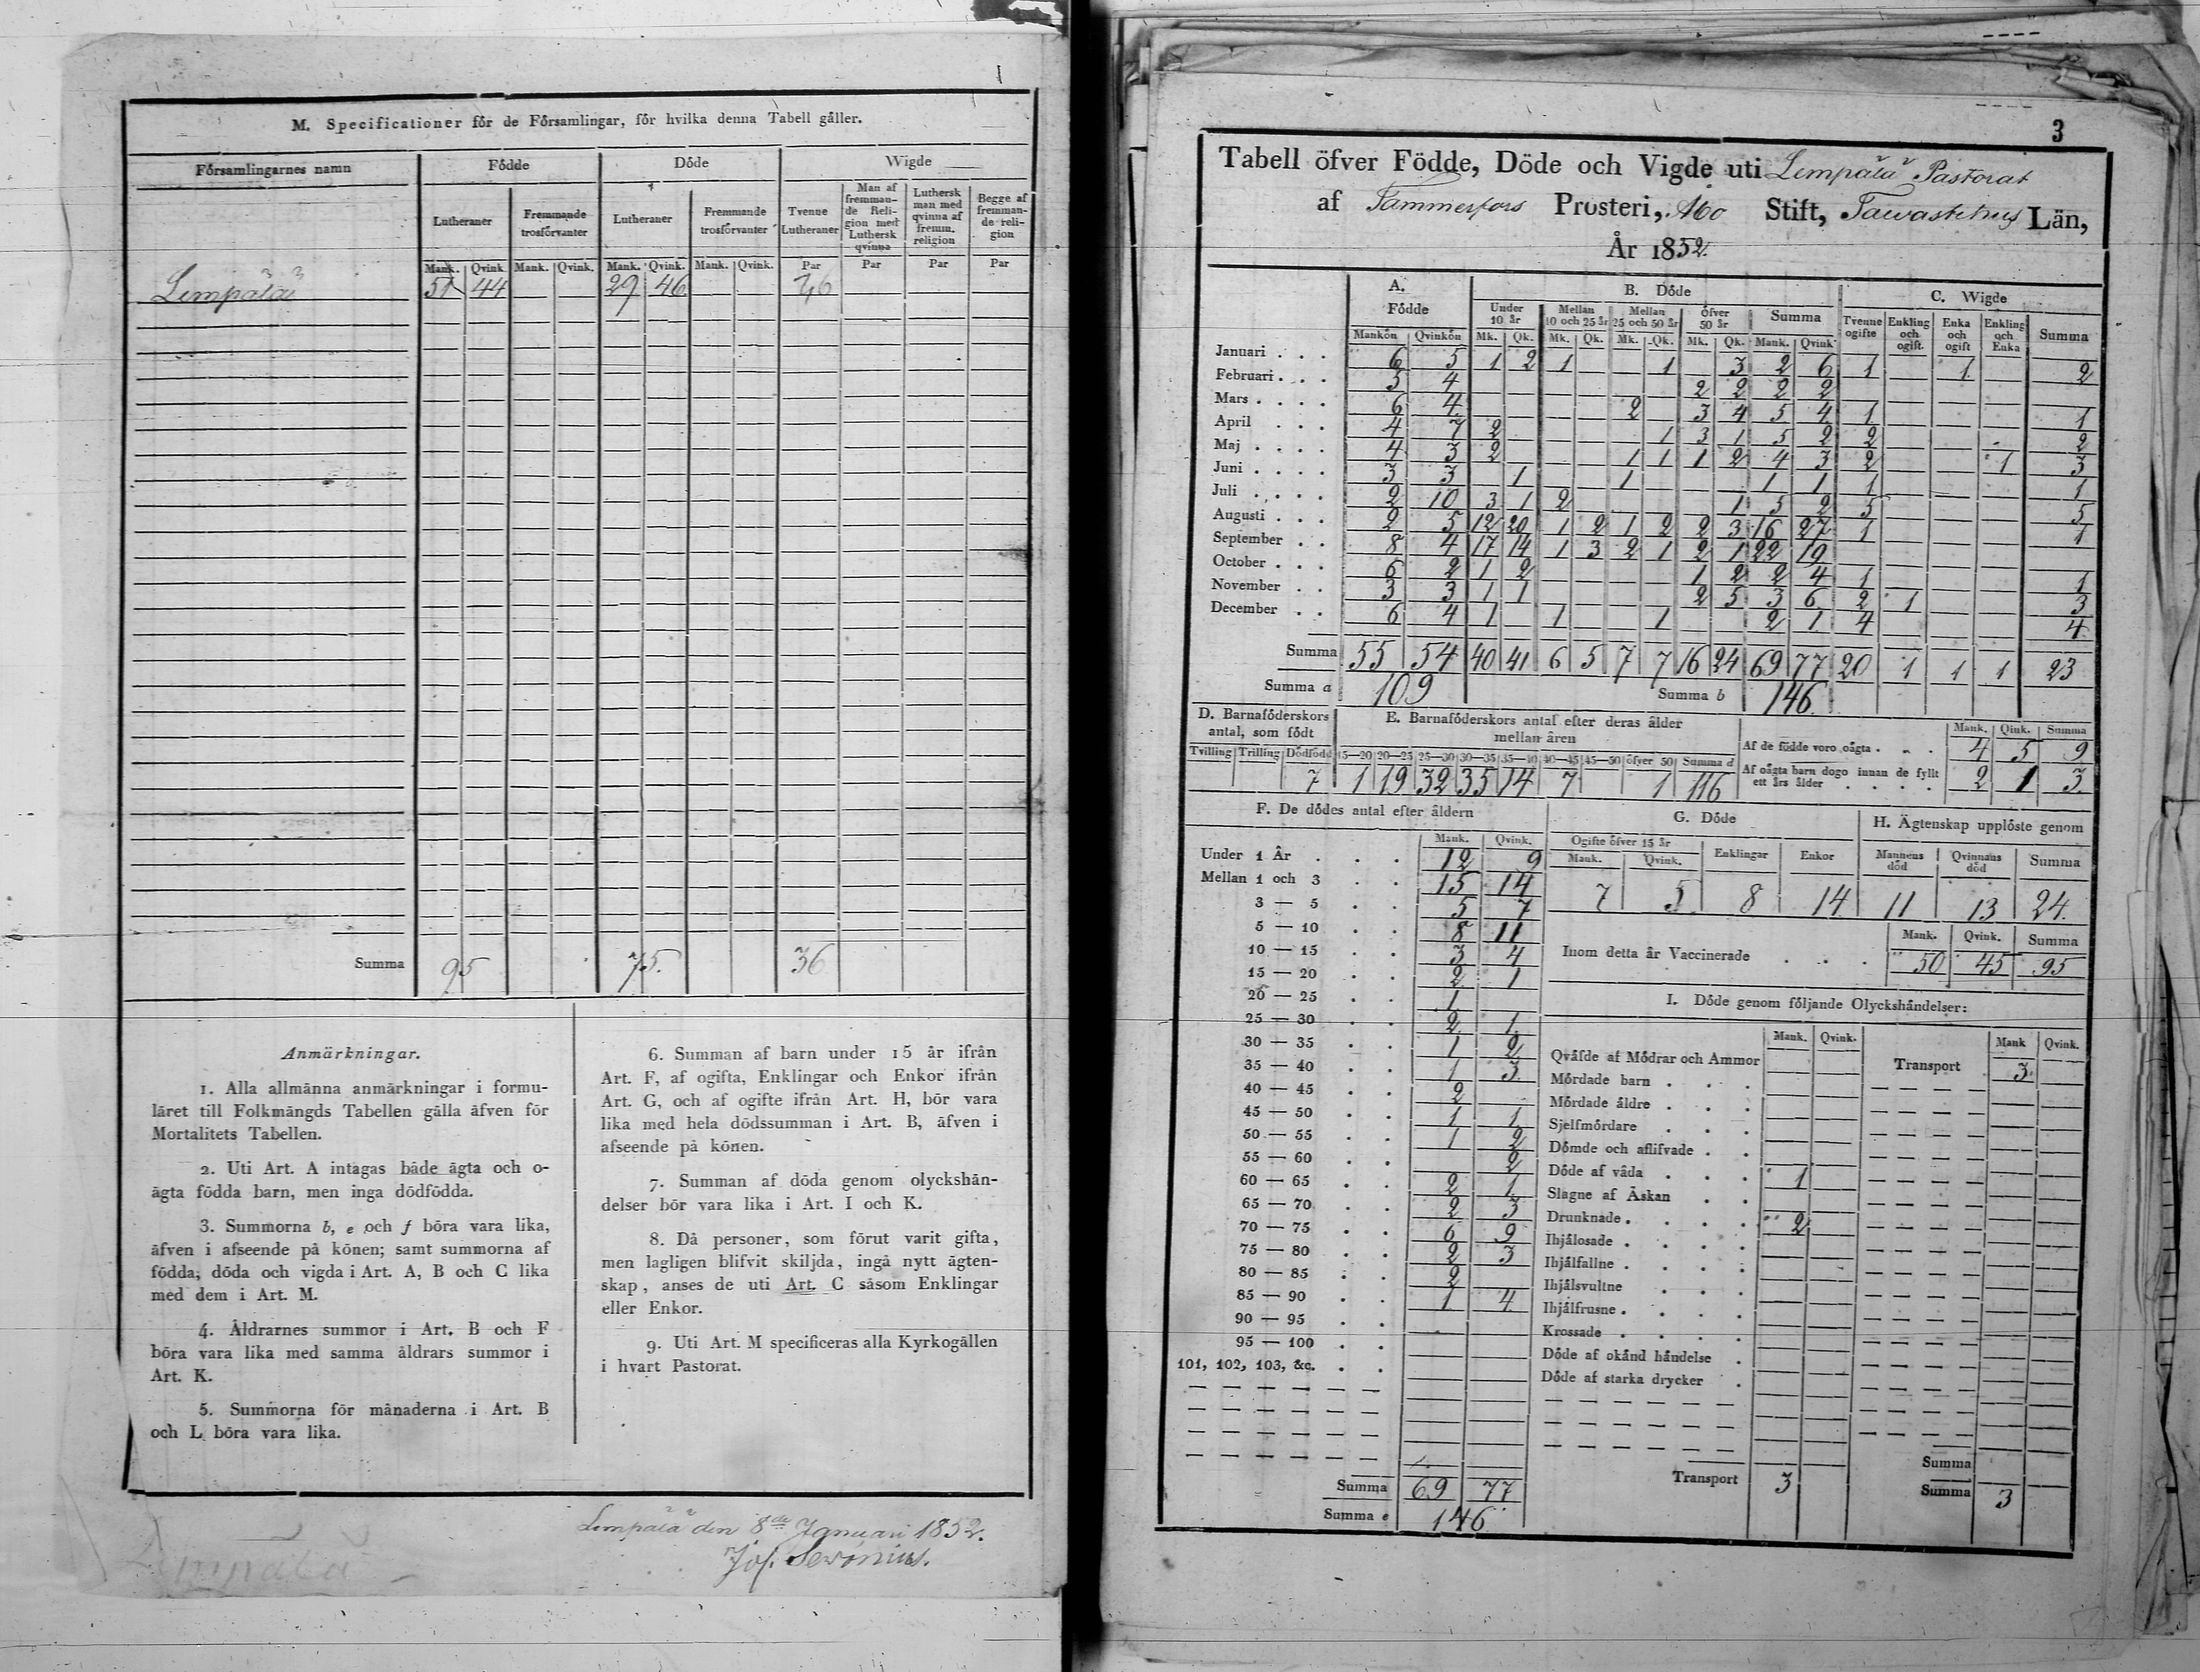 M. Specificationer för de Församlingar, för hvilka denna Tabell gäller.
Församlingarnes namn | Födde | Döde | Wigde
Lutheraner | Fremmande trosförvanter | Lutheraner | Fremmande trosförvanter | Tvenne Lutheraner | Man af fremmande Religion med Luthersk qvinna | Luthersk man med qvinna af fremm. religion | Begge af fremmande religion
Mank. | Qvink. | Mank. | Qvink. | Mank. | Qvink. | Mank. | Qvink. | Par | Par | Par | Par
Lempälä | 51 | 44 | 29 | 46 | 36
Summa | 95 | 75. | 36
Anmärkningar.
1. Alla allmänna anmärkningar i formu-
läret till Folkmängds Tabellen gälla äfven för
Mortalitets Tabellen.
2. Uti Art. A intagas både ägta och o-
ägta födda barn, men inga dödfödda.
3. Summorna b, e och f böra vara lika,
äfven i afseende på könen; samt summorna af
födda, döda och vigda i Art. A, B och C lika
med dem i Art. M.
4. Åldrarnes summor i Art. B och F
böra vara lika med samma åldrars summor i
Art. K.
5. Summorna för månaderna i Art. B
och L böra vara lika.
6. Summan af barn under 15 år ifrån
Art. F, af ogifta, Enklingar och Enkor ifrån
Art. G, och af ogifte ifrån Art. H, bör vara
lika med hela dödssumman i Art. B, äfven i
afseende på könen.
7. Summan af döda genom olyckshän-
delser bör vara lika i Art. I och K.
8. Då personer, som förut varit gifta,
men lagligen blifvit skiljda, ingå nytt ägten-
skap, anses de uti Art. C såsom Enklingar
eller Enkor.
9. Uti Art. M specificeras alla Kyrkogällen
i hvart Pastorat.
Lempälä den 8de Januari 1852.
Jos. Serónius.
Lempälä
3
Tabell öfver Födde, Döde och Vigde uti Lempälä Pastorat
af Tammerfors Prosteri, Åbo Stift, Tawastehus Län,
År 1852.
A. Födde | B. Döde | C. Wigde
Under 10 år | Mellan 10 och 25 år | Mellan 25 och 50 år | Öfver 50 år | Summa | Tvenne ogifte | Enkling och ogift. | Enka och ogift | Enkling och Enka | Summa
Mankön | Qvinkön | Mk. | Qk. | Mk. | Qk. | Mk. | Qk. | Mk. | Qk. | Mank. | Qvink
Januari | 6 | 5 | 1 | 2 | 1 | 1 | 3 | 2 | 6 | 1 | 1 | 2
Februari | 5 | 4 | 2 | 2 | 2 | 2
Mars | 6 | 4 | 2 | 3 | 4 | 5 | 4 | 1 | 1
April | 4 | 7 | 2 | 1 | 3 | 1 | 5 | 2 | 2 | 2
Maj | 4 | 3 | 2 | 1 | 1 | 1 | 2 | 4 | 3 | 2 | 1 | 3
Juni | 3 | 3 | 1 | 1 | 1 | 1 | 1 | 1
Juli | 2 | 10 | 3 | 1 | 2 | 1 | 5 | 2 | 5 | 5
Augusti | 2 | 5 | 12 | 20 | 1 | 2 | 1 | 2 | 2 | 3 | 16 | 27 | 1 | 1
September | 8 | 4 | 17 | 14 | 1 | 3 | 2 | 1 | 2 | 1 | 22 | 19
October | 6 | 2 | 1 | 2 | 1 | 2 | 2 | 4 | 1 | 1
November | 3 | 3 | 1 | 1 | 2 | 5 | 3 | 6 | 2 | 1 | 3
December | 6 | 4 | 1 | 1 | 1 | 2 | 1 | 4 | 4
Summa | 55 | 54 | 40 | 41 | 6 | 5 | 7 | 7 | 16 | 24 | 69 | 77 | 20 | 1 | 1 | 1 | 23
Summa a | 109 | Summa b | 146.
D. Barnaföderskors antal, som födt
Tvilling | Trilling | Dödfödd
7
E. Barnaföderskors antal efter deras ålder mellan åren
15—20 | 20—25 | 25—30 | 30—35 | 35—40 | 40—45 | 45—50 | öfver 50 | Summa d
1 | 19 | 32 | 35 | 14 | 7 | 1 | 116
Mank. | Qink. | Summa
Af de födde voro oägta | 4 | 5 | 9
Af oägta barn dogo innan de fyllt ett års ålder | 2 | 1 | 3
F. De dödes antal efter åldern
Mank. | Qvink.
Under 1 År | 12 | 9
Mellan 1 och 3 | 15 | 14
3 — 5 | 5 | 7
5 — 10 | 8 | 11
10 — 15 | 3 | 4
15 — 20 | 2 | 1
20 — 25 | 1
25 — 30 | 2 | 1
30 — 35 | 1 | 2
35 — 40 | 1 | 3
40 — 45 | 2
45 — 50 | 1 | 1
50 — 55 | 1 | 2
55 — 60 | 2
60 — 65 | 2 | 1
65 — 70 | 2 | 3
70 — 75 | 6 | 9
75 — 80 | 2 | 3
80 — 85 | 2
85 — 90 | 1 | 4
90 — 95
95 — 100
101, 102, 103, &c.
Summa | 69 | 77
Summa e | 146
G. Döde
Ogifte öfver 15 år | Enklingar | Enkor
Mank. | Qvink.
7 | 5 | 8 | 14
H. Ägtenskap upplöste genom
Mannens död | Qvinnans död | Summa
11 | 13 | 24.
Mank. | Qvink. | Summa
Inom detta år Vaccinerade | 50 | 45 | 95
I. Döde genom följande Olyckshändelser:
Mank. | Qvink. | Mank | Qvink.
Qväfde af Mödrar och Ammor | Transport | 3.
Mördade barn
Mördade äldre
Sjelfmördare
Dömde och aflifvade
Döde af våda | 1
Slagne af Åskan
Drunknade | 2
Ihjälosade
Ihjälfallne
Ihjälsvultne
Ihjälfrusne
Krossade
Döde af okänd händelse
Döde af starka drycker
Summa
Transport | 3 | Summa | 3